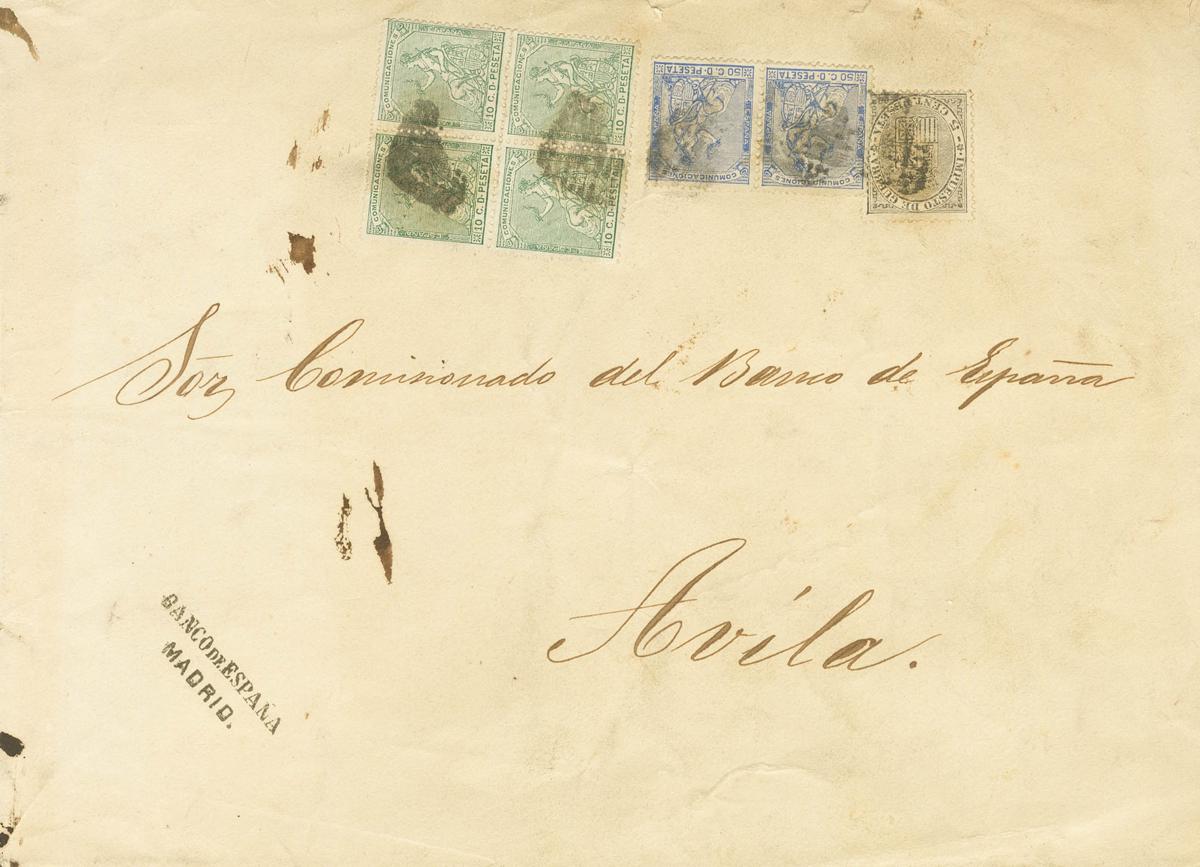 COMUNICACIONES
ESPAÑA
10 C. D. PESETA
COMUNICACIONES
ESPAÑA
10 C. D. PESETA
COMUNICACIONES
ESPAÑA
10 C. D. PESETA
COMUNICACIONES
ESPAÑA
10 C. D. PESETA
50 C. D. PESETA
COMUNICACIONES
50 C. D. PESETA
ESPAÑA
COMUNICACIONES
IMPUESTO DE GUERRA
5 CENT. PESETA
Sōr Comisionado del Banco de España
Avíla.
BANCO DE ESPAÑA
MADRID.